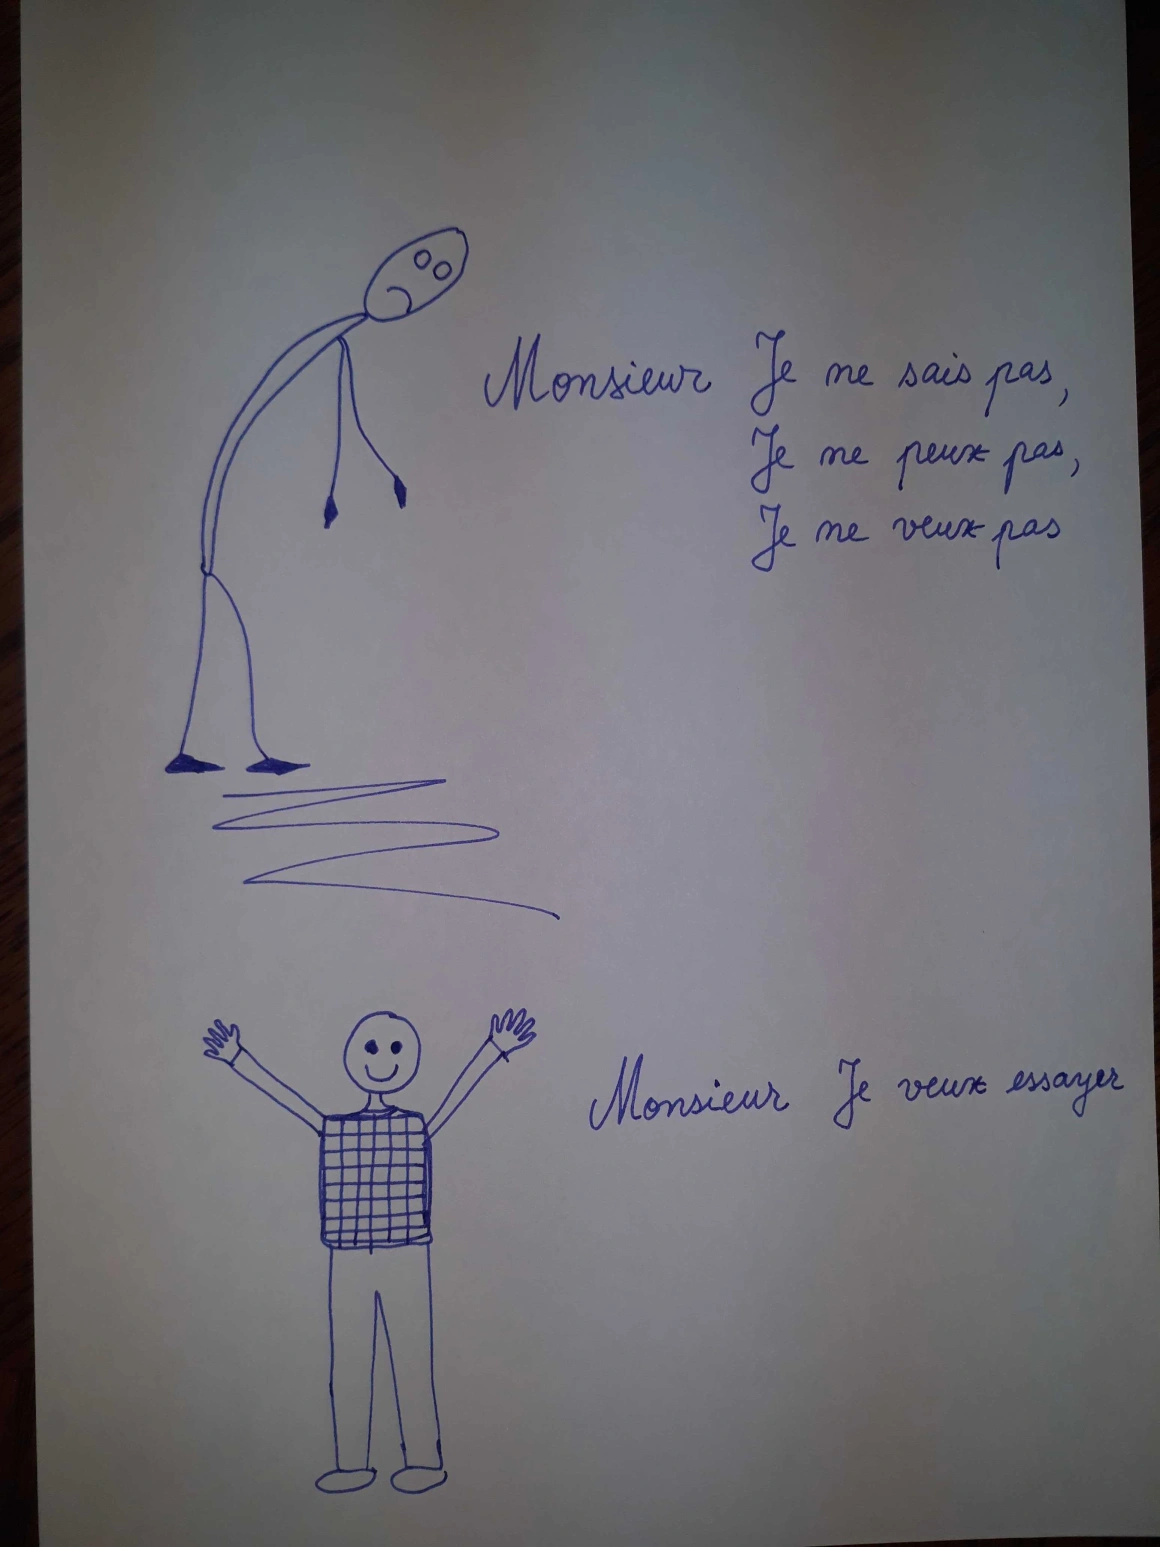 Monsieur Je ne sais pas,
Je ne peux pas,
Je ne veux pas
Monsieur Je veux essayer